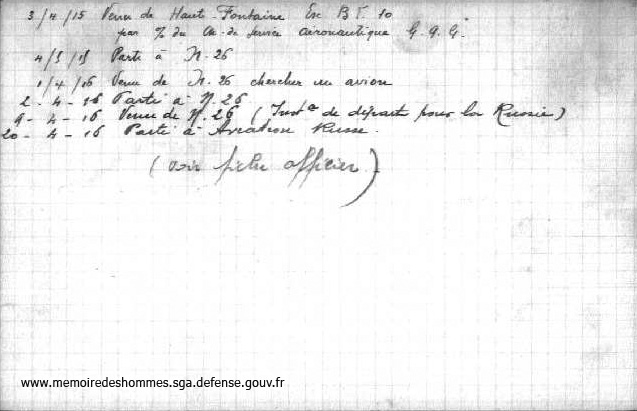 3/4/15 Venu de Haut Fontaine Ex B T 10
par % du Ch. de service aeronautique G. Q. G.
4/5/15 Parti à N. 26
1/4/16 Venu de N. 26 chercher un avion
2 - 4 - 16 Parti à N. 26
9 - 4 - 16 Venu de N. 26 ( de départ pour la Russie)
20 - 4 - 16 Parti à Aviation Russe.
(voir fiche officier)
www.memoiredeshommes.sga.defense.gouv.fr